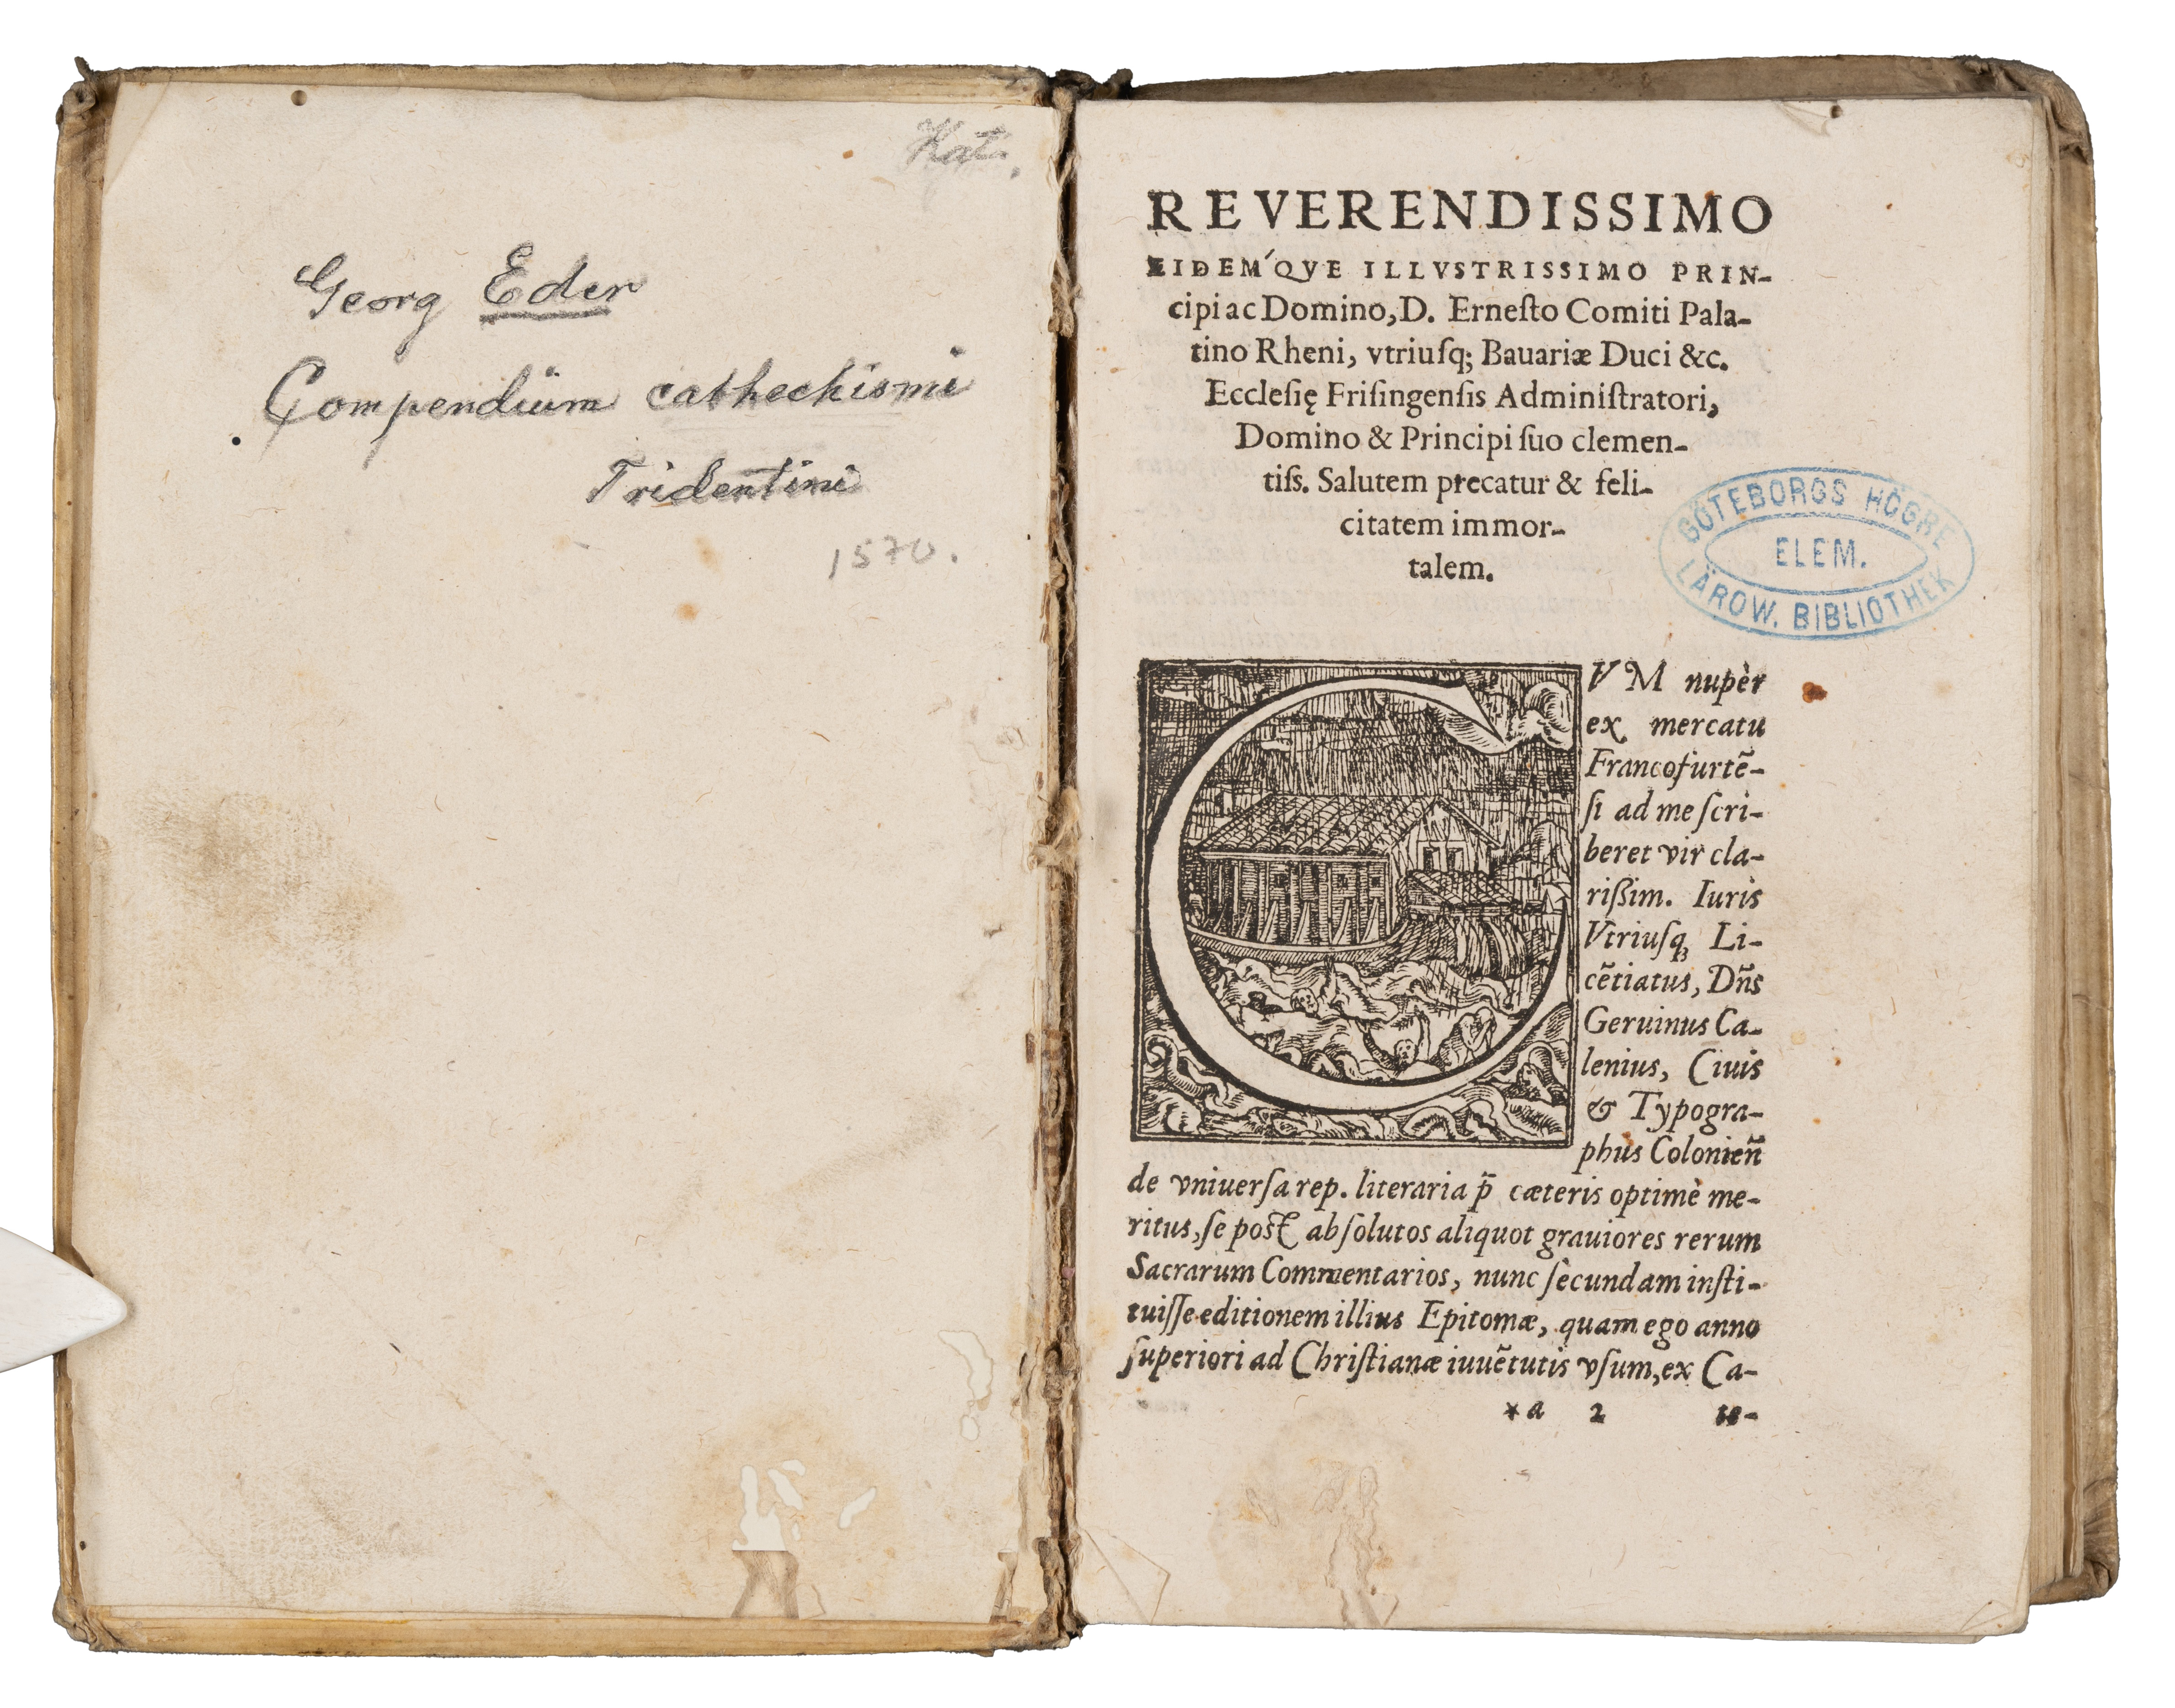 Kat.
Georg Eder
Compendium cathechismi
Tridentini
1570.
REVERENDISSIMO
EIDEMQVE ILLVSTRISSIMO PRIN-
cipi ac Domino, D. Erneſto Comiti Pala-
tino Rheni, vtriuſq; Bauariæ Duci &c.
Eccleſię Friſingenſis Adminiſtratori,
Domino & Principi ſuo clemen-
tiſs. Salutem precatur & feli-
citatem immor-
talem.
GÖTEBORGS HÖGRE
ELEM.
LÄROW. BIBLIOTHEK
CVM nupèr
ex mercatu
Francofurtẽ-
ſi ad me ſcri-
beret vir cla-
riſsim. Iuris
Vtriuſq; Li-
cẽtiatus, Dñs
Geruinus Ca-
lenius, Ciuis
& Typogra-
phus Colonieñ
de vniuerſa rep. literaria p̃ cæteris optimè me-
ritus, ſe poſt abſolutos aliquot grauiores rerum
Sacrarum Commentarios, nunc ſecundam inſti-
tuiſſe editionem illius Epitomæ, quam ego anno
ſuperiori ad Chriſtianæ iuuẽtutis vſum, ex Ca-
*a 2 te-